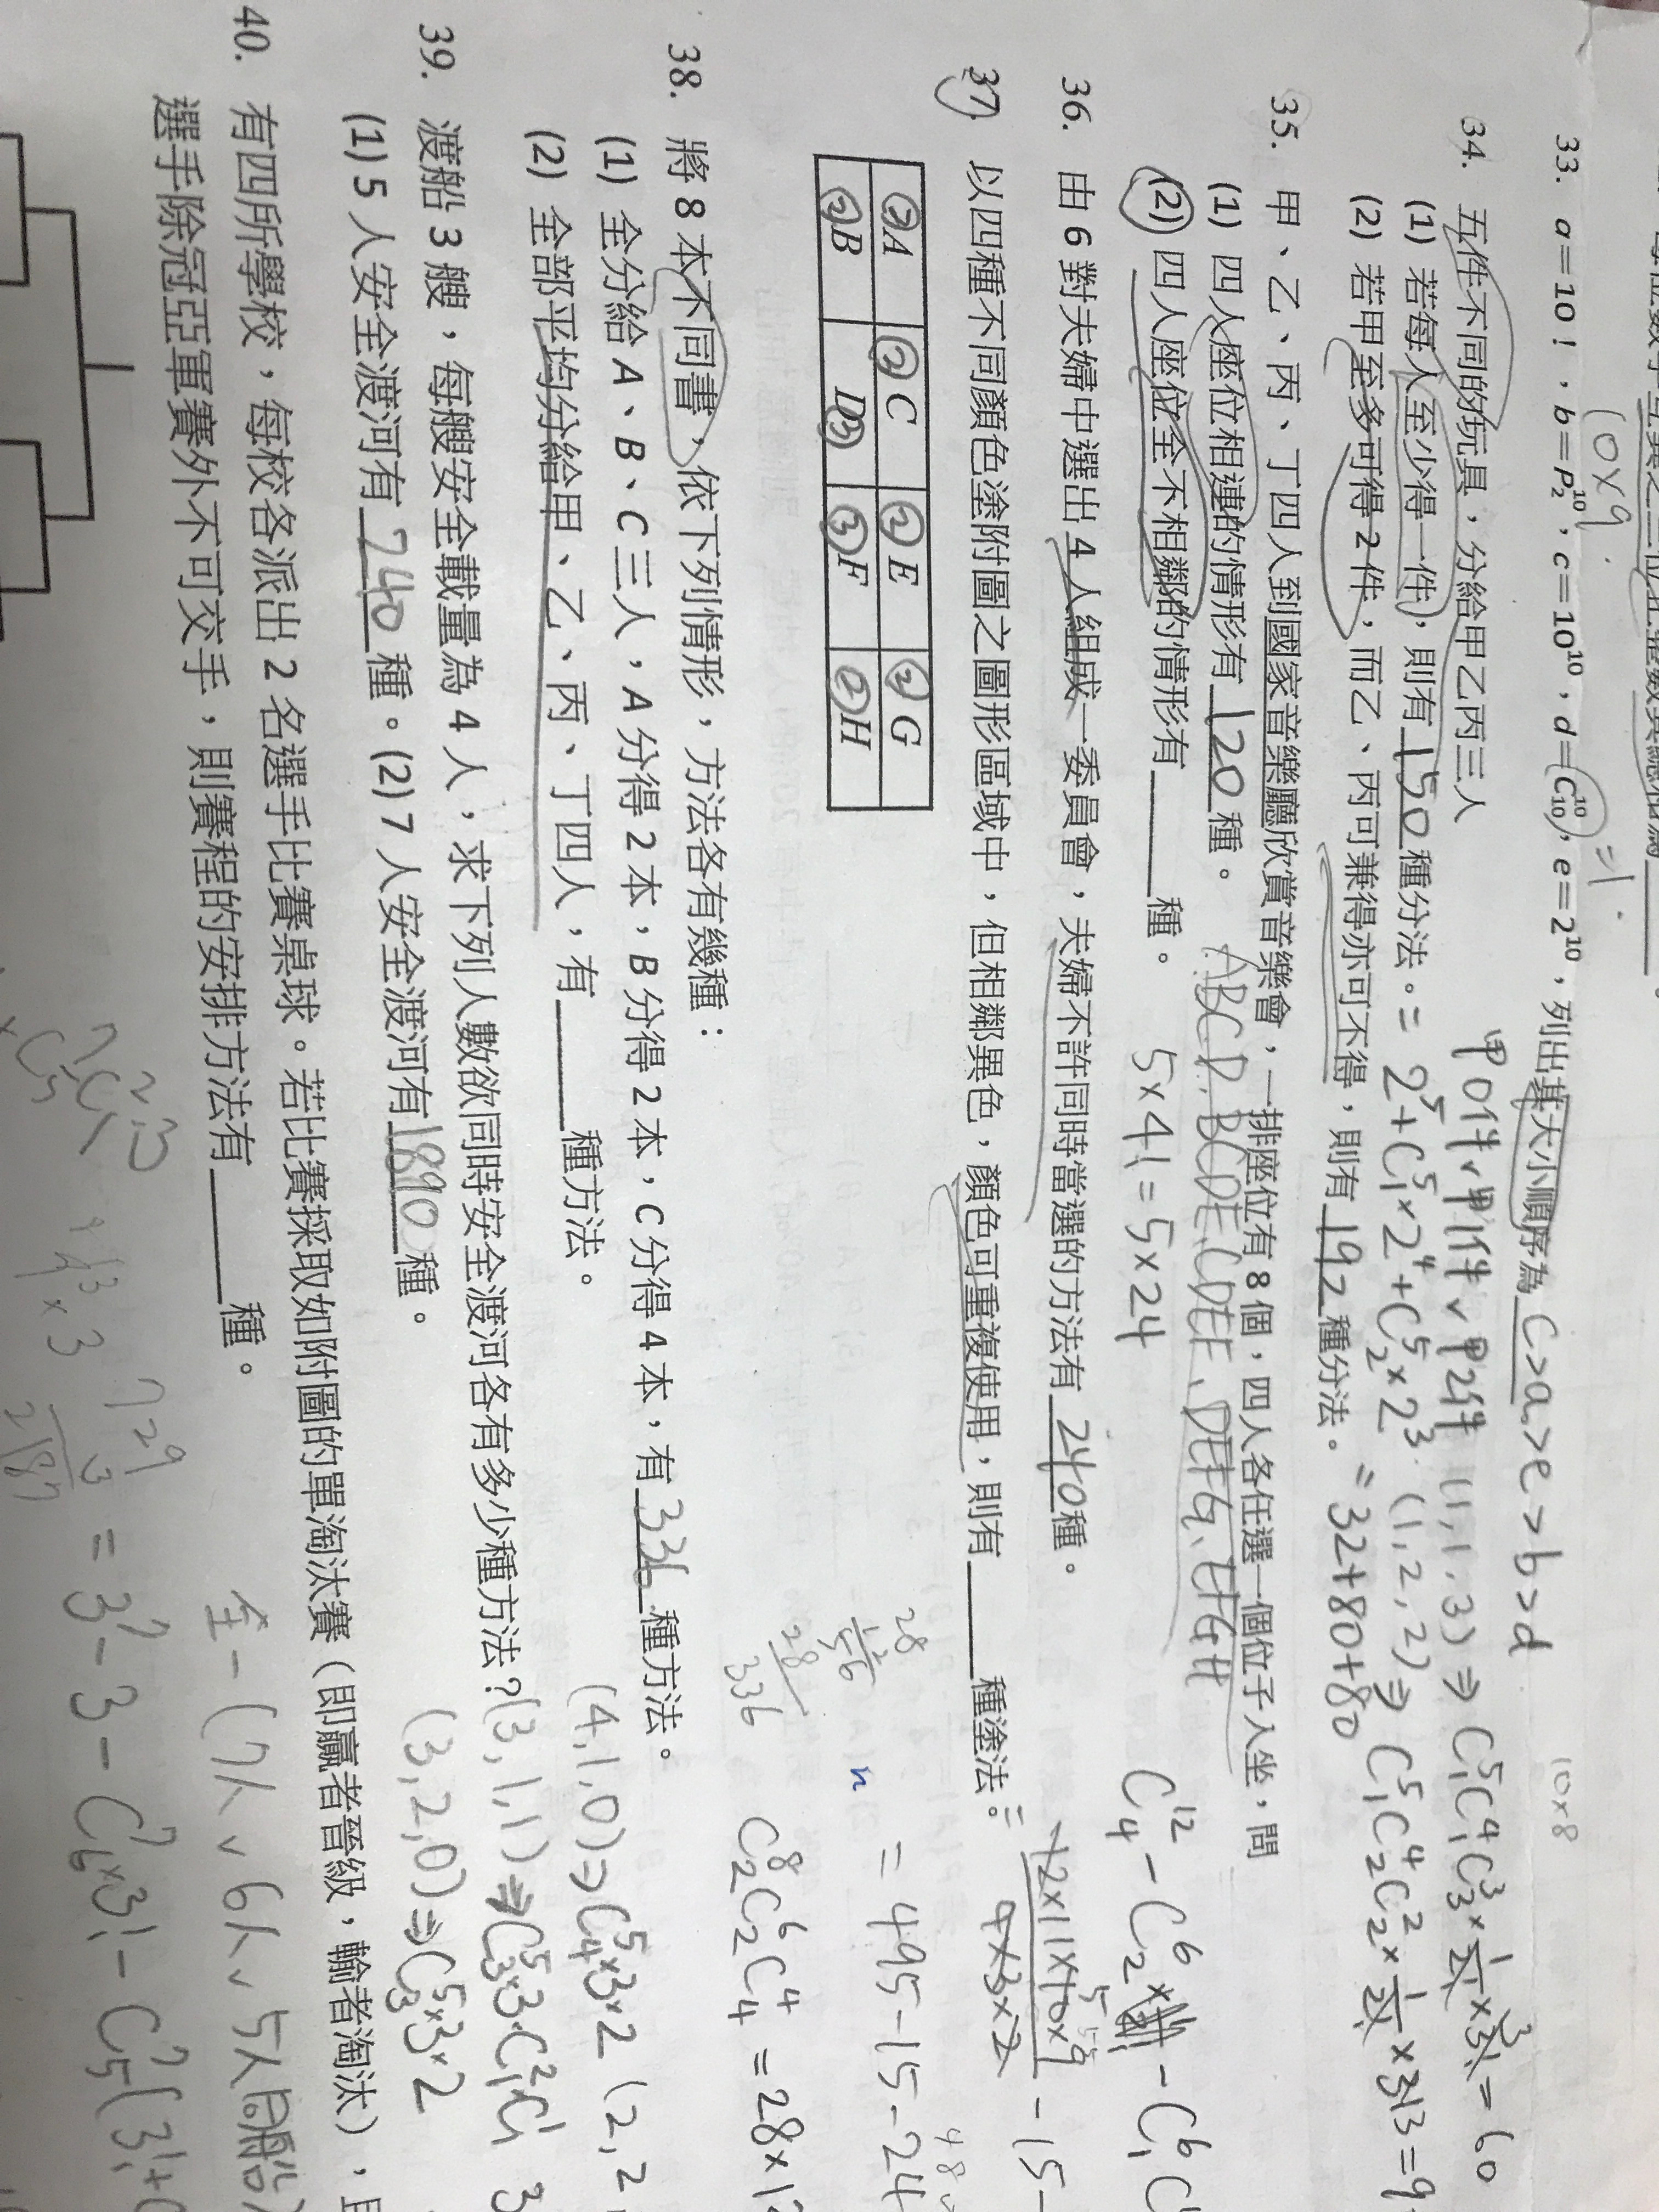 10×9
=1
33. a=10!，b=P₂¹⁰，c=10¹⁰，d=C₁₀¹⁰，e=2¹⁰，列出其大小順序為 C>a>e>b>d
10×8
34. 五件不同的玩具，分給甲乙丙三人
甲0件∨甲1件∨甲2件 (1,1,3)⇒C₁⁵C₁⁴C₃³×1/2!×3!=60
(1) 若每人至少得一件，則有150種分法。=2⁵+C₁⁵×2⁴+C₂⁵×2³ (1,2,2)⇒C₁⁵C₂⁴C₂²×1/2!×3!=9
(2) 若甲至多可得2件，而乙、丙可兼得亦可不得，則有192種分法。=32+80+80
35. 甲、乙、丙、丁四人到國家音樂廳欣賞音樂會，一排座位有8個，四人各任選一個位子入坐，問
(1) 四人座位相連的情形有120種。 ABCD、BCDE、CDEF、DEFG、EFGH
(2) 四人座位全不相鄰的情形有____種。 5×4!=5×24
36. 由6對夫婦中選出4人組成一委員會，夫婦不許同時當選的方法有240種。 C₄¹²-C₂⁶× -C₁⁶C
37. 以四種不同顏色塗附圖之圖形區域中，但相鄰異色，顏色可重複使用，則有____種塗法。 =12×11×10×9/4×3×2 -15-
=495-15-24
③A ②C ②E ②G
②B D③ ③F ②H
28
12
56
28
336
n
38. 將8本不同書，依下列情形，方法各有幾種：
C₂⁸C₂⁶C₄⁴=28×1
(1) 全分給A、B、C三人，A分得2本，B分得2本，C分得4本，有336種方法。
(2) 全部平均分給甲、乙、丙、丁四人，有____種方法。
(4,1,0)⇒C₄⁵×3×2 (2,2,
39. 渡船3艘，每艘安全載量為4人，求下列人數欲同時安全渡河各有多少種方法？(3,1,1)⇒C₃⁵×3×C₁²C₁¹
(1) 5人安全渡河有240種。(2) 7人安全渡河有1890種。 (3,2,0)⇒C₃⁵×3×2
40. 有四所學校，每校各派出2名選手比賽桌球。若比賽採取如附圖的單淘汰賽（即贏者晉級，輸者淘汰），且
選手除冠亞軍賽外不可交手，則賽程的安排方法有____種。
全-(7人∨6人∨5人同船)
729
3
2187
=3⁷-3-C₆⁷×3!-C₅⁷(3!+